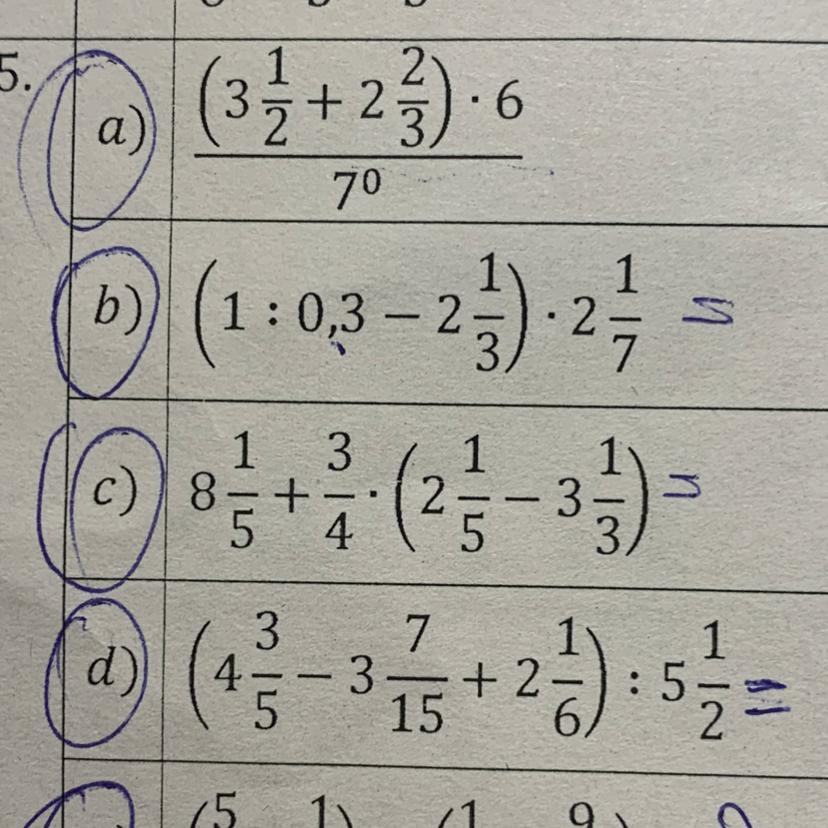 5.
a) \frac{(3\frac{1}{2} + 2\frac{2}{3}) · 6}{7^0}
b) (1 : 0,3 − 2\frac{1}{3}) · 2\frac{1}{7} =
c) 8\frac{1}{5} + \frac{3}{4} · (2\frac{1}{5} − 3\frac{1}{3}) =
d) (4\frac{3}{5} − 3\frac{7}{15} + 2\frac{1}{6}) : 5\frac{1}{2} =